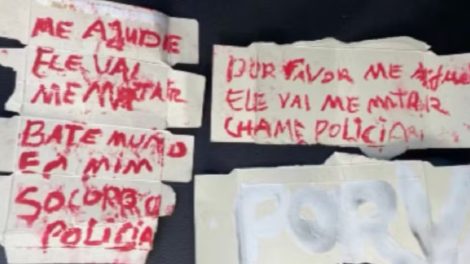 ME AJUDE
ELE VAI
ME MATAR
BATE MUITO
EM MIM
SOCORRO
POLICIA
POR FAVOR ME AJUD
ELE VAI ME MATAR
CHAME POLICIA
POR